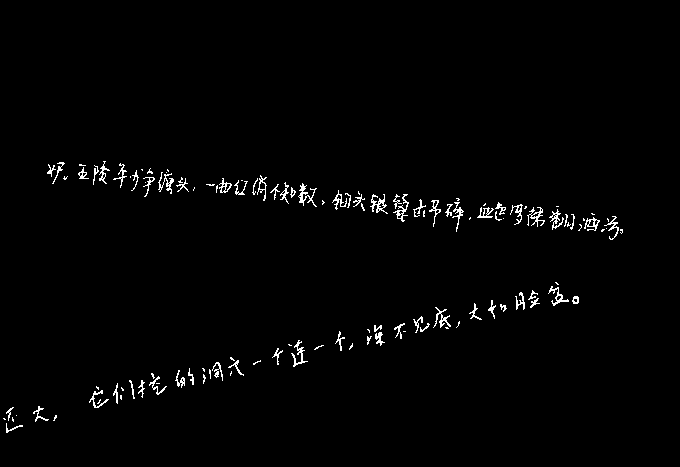 妒。五陵年少争缠头,一曲红绡不知数。钿头银篦击节碎,血色罗裙翻酒污。
还大,它们挖的洞穴一个连一个,深不见底,大如脸盆。